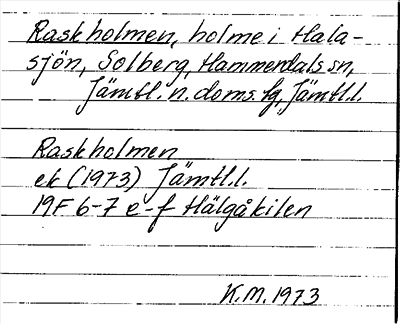 Raskholmen, holme i Hala-
sjön, Solberg, Hammerdals sn,
Jämtl. n. doms. fg, Jämtl.l.
Raskholmen
ek (1973) Jämtl.l.
19F 6-7 e-f Hälgåkilen
K.M. 1973